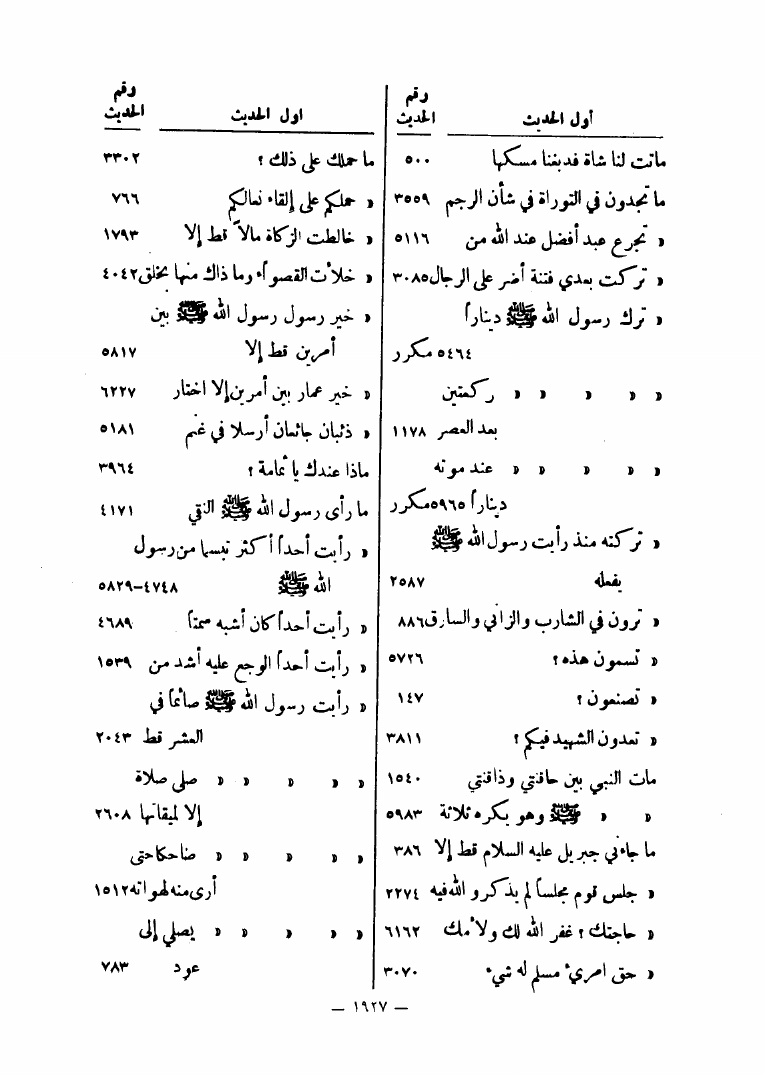 أول الحديث
رقم
الحديث
ماتت لنا شاة فدبغنا مسكها ٥٠٠
ما تجدون في التوراة في شأن الرجم ٣٥٥٩
« تجرع عبد أفضل عند الله من ٥١١٦
« تركت بعدي فتنة أضر على الرجال ٣٠٨٥
« ترك رسول الله ﷺ ديناراً
٥٤٦٤ مكرر
« « « « « ركعتين
بعد العصر ١١٧٨
« « « « « عند موته
ديناراً ٥٩٦٥ مكرر
« تركته منذ رأيت رسول الله ﷺ
يفعله ٢٥٨٧
« ترون في الشارب والزاني والسارق ٨٨٦
« تسمون هذه ؟ ٥٧٢٦
« تصنعون ؟ ١٤٧
« تعدون الشهيد فيكم ؟ ٣٨١١
مات النبي بين حاقنتي وذاقنتي ١٥٤٠
« « ﷺ وهو يكره ثلاثة ٥٩٨٣
ما جاءني جبريل عليه السلام قط إلا ٣٨٦
« جلس قوم مجلساً لم يذكروا الله فيه ٢٢٧٤
« حاجتك ؟ غفر الله لك ولأمك ٦١٦٢
« حق امرئ مسلم له شيء ٣٠٧٠
اول الحديث
رقم
الحديث
ما حملك على ذلك ؟ ٣٣٠٢
« حملكم على إلقاء نعالكم ٧٦٦
« خالطت الزكاة مالاً قط إلا ١٧٩٣
« خلأت القصواء وما ذاك منها بخلق ٤٠٤٢
« خير رسول رسول الله ﷺ بين
أمرين قط إلا ٥٨١٧
« خير عمار بين أمرين إلا اختار ٦٢٢٧
« ذئبان جائعان أرسلا في غنم ٥١٨١
ماذا عندك يا ثمامة ؟ ٣٩٦٤
ما رأى رسول الله ﷺ النقي ٤١٧١
« رأيت أحداً أكثر تبسما من رسول
الله ﷺ ٤٧٤٨-٥٨٢٩
« رأيت أحداً كان أشبه سمتاً ٤٦٨٩
« رأيت أحداً الوجع عليه أشد من ١٥٣٩
« رأيت رسول الله ﷺ صائماً في
العشر قط ٢٠٤٣
« « « « « صلى صلاة
إلا لميقاتها ٢٦٠٨
« « « « « ضاحكا حتى
أرى منه لهواته ١٥١٢
« « « « « يصلي إلى
عود ٧٨٣
— ١٩٢٧ —